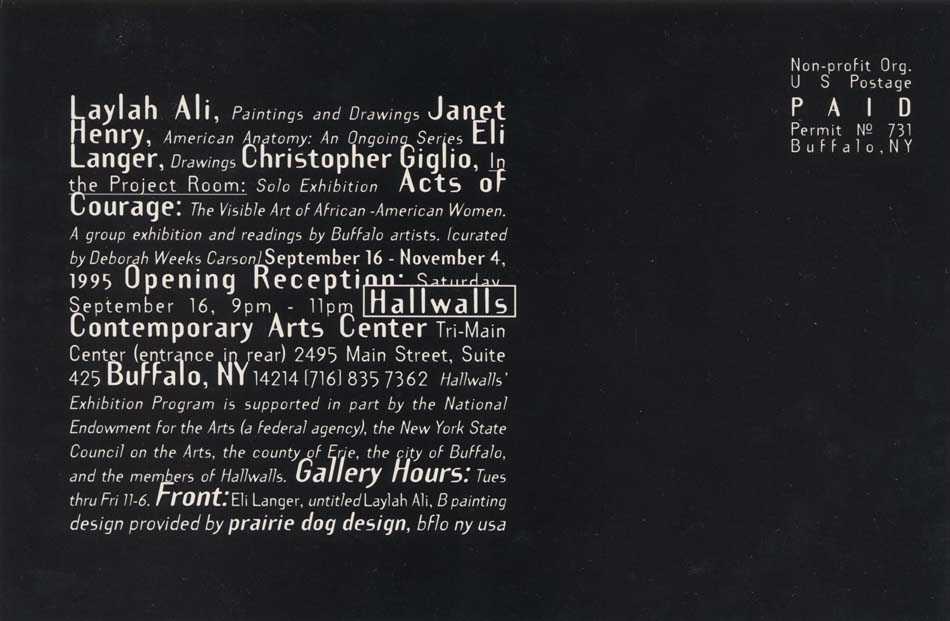 Laylah Ali, Paintings and Drawings Janet
Henry, American Anatomy: An Ongoing Series Eli
Langer, Drawings Christopher Giglio, In
the Project Room: Solo Exhibition Acts of
Courage: The Visible Art of African -American Women.
A group exhibition and readings by Buffalo artists. (curated
by Deborah Weeks Carson) September 16 - November 4,
1995 Opening Reception: Saturday
September 16, 9pm - 11pm Hallwalls
Contemporary Arts Center Tri-Main
Center (entrance in rear) 2495 Main Street, Suite
425 Buffalo, NY 14214 (716) 835 7362 Hallwalls'
Exhibition Program is supported in part by the National
Endowment for the Arts (a federal agency), the New York State
Council on the Arts, the county of Erie, the city of Buffalo,
and the members of Hallwalls. Gallery Hours: Tues
thru Fri 11-6. Front: Eli Langer, untitled Laylah Ali, B painting
design provided by prairie dog design, bflo ny usa
Non-profit Org.
U S Postage
PAID
Permit № 731
Buffalo, NY